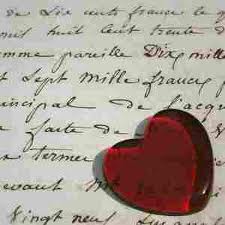 de Dix cents francs le q
huit cent trente d
omme pareille Dix mille
t Sept Mille francs p
incipal de l'acqu
faite de
termes
devant M
Vingt neuf